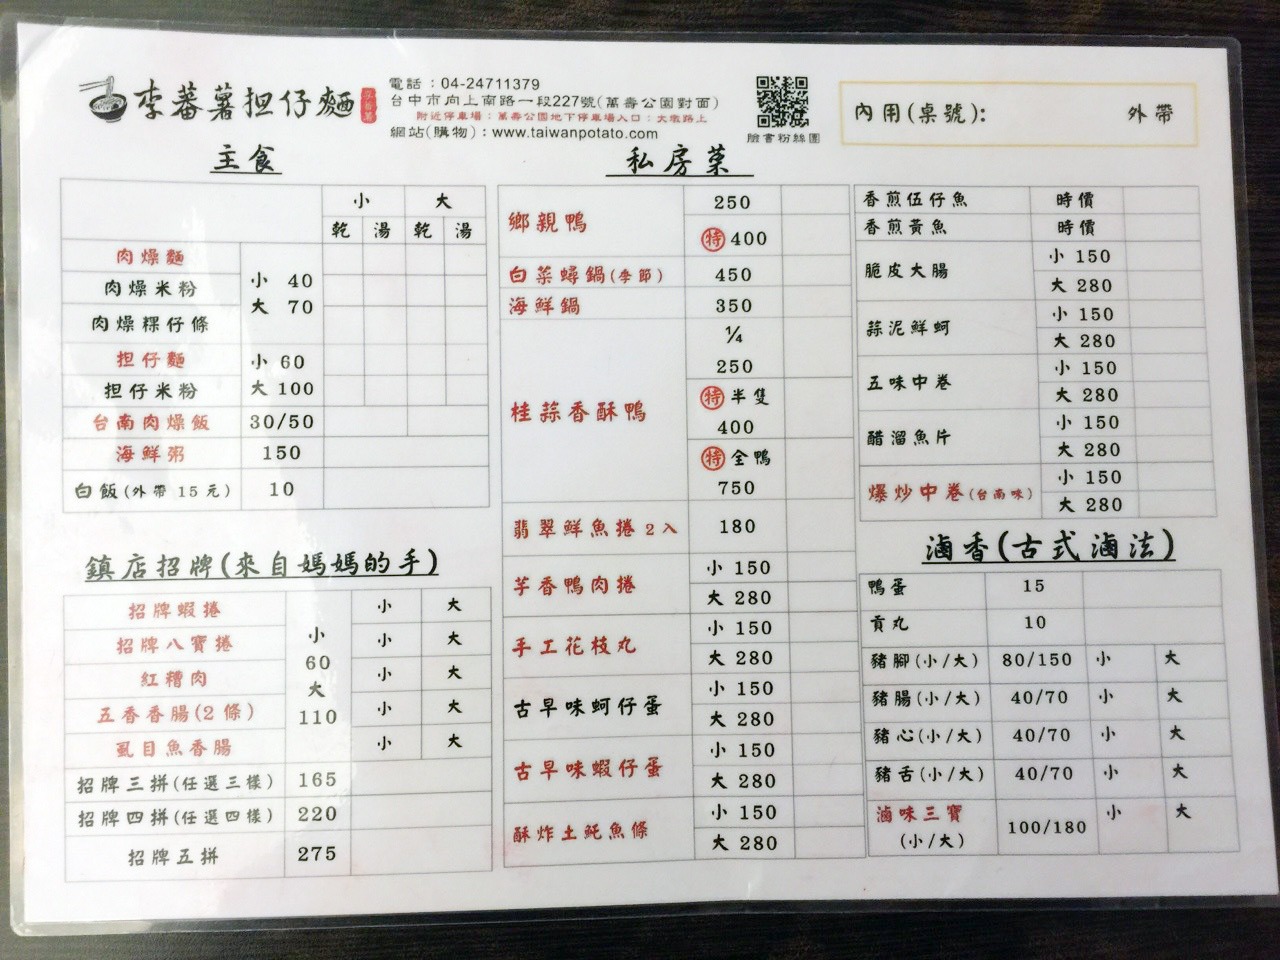 李蕃薯担仔麵
李蕃薯
電話：04-24711379
台中市向上南路一段227號(萬壽公園對面)
附近停車場：萬壽公園地下停車場入口：大墩路上
網站(購物)：www.taiwanpotato.com
臉書粉絲團
內用(桌號)： 外帶
主食
小 大
乾 湯 乾 湯
肉燥麵
肉燥米粉
肉燥粿仔條
小 40
大 70
担仔麵
担仔米粉
小 60
大 100
台南肉燥飯 30/50
海鮮粥 150
白飯(外帶 15 元) 10
鎮店招牌(來自媽媽的手)
招牌蝦捲 小 大
招牌八寶捲 小 大
紅糟肉 小 大
五香香腸(2 條) 小 大
虱目魚香腸 小 大
小
60
大
110
招牌三拼(任選三樣) 165
招牌四拼(任選四樣) 220
招牌五拼 275
私房菜
鄉親鴨 250
特 400
白菜蟳鍋(季節) 450
海鮮鍋 350
桂蒜香酥鴨
¼
250
特 半隻
400
特 全鴨
750
翡翠鮮魚捲 2 入 180
芋香鴨肉捲 小 150
大 280
手工花枝丸 小 150
大 280
古早味蚵仔蛋 小 150
大 280
古早味蝦仔蛋 小 150
大 280
酥炸土魠魚條 小 150
大 280
香煎伍仔魚 時價
香煎黃魚 時價
脆皮大腸 小 150
大 280
蒜泥鮮蚵 小 150
大 280
五味中卷 小 150
大 280
醋溜魚片 小 150
大 280
爆炒中卷(台南味) 小 150
大 280
滷香(古式滷法)
鴨蛋 15
貢丸 10
豬腳(小/大) 80/150 小 大
豬腸(小/大) 40/70 小 大
豬心(小/大) 40/70 小 大
豬舌(小/大) 40/70 小 大
滷味三寶
(小/大) 100/180 小 大